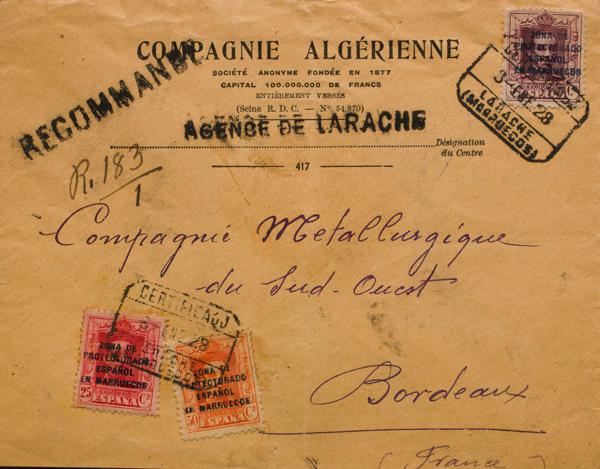 COMPAGNIE ALGÉRIENNE
SOCIÉTÉ ANONYME FONDÉE EN 1877
CAPITAL 100.000.000 DE FRANCS
ENTIÈREMENT VERSÉS
(Seine R. D. C. — N° 54.870)
RECOMMANDÉ
AGENCE DE LARACHE
Désignation
du Centre
417
R. 183
1
ZONA DE
PROTECTORADO
ESPAÑOL
EN MARRUECOS
28
LARACHE
(MARRUECOS)
Compagnie Metallurgique
du Sud-Ouest
Bordeaux
(France)
CERTIFICADO
28
ZONA DE
PROTECTORADO
ESPAÑOL
EN MARRUECOS
25 Cs
ESPAÑA
ZONA DE
PROTECTORADO
ESPAÑOL
EN MARRUECOS
CORREOS
50 Cs
ESPAÑA